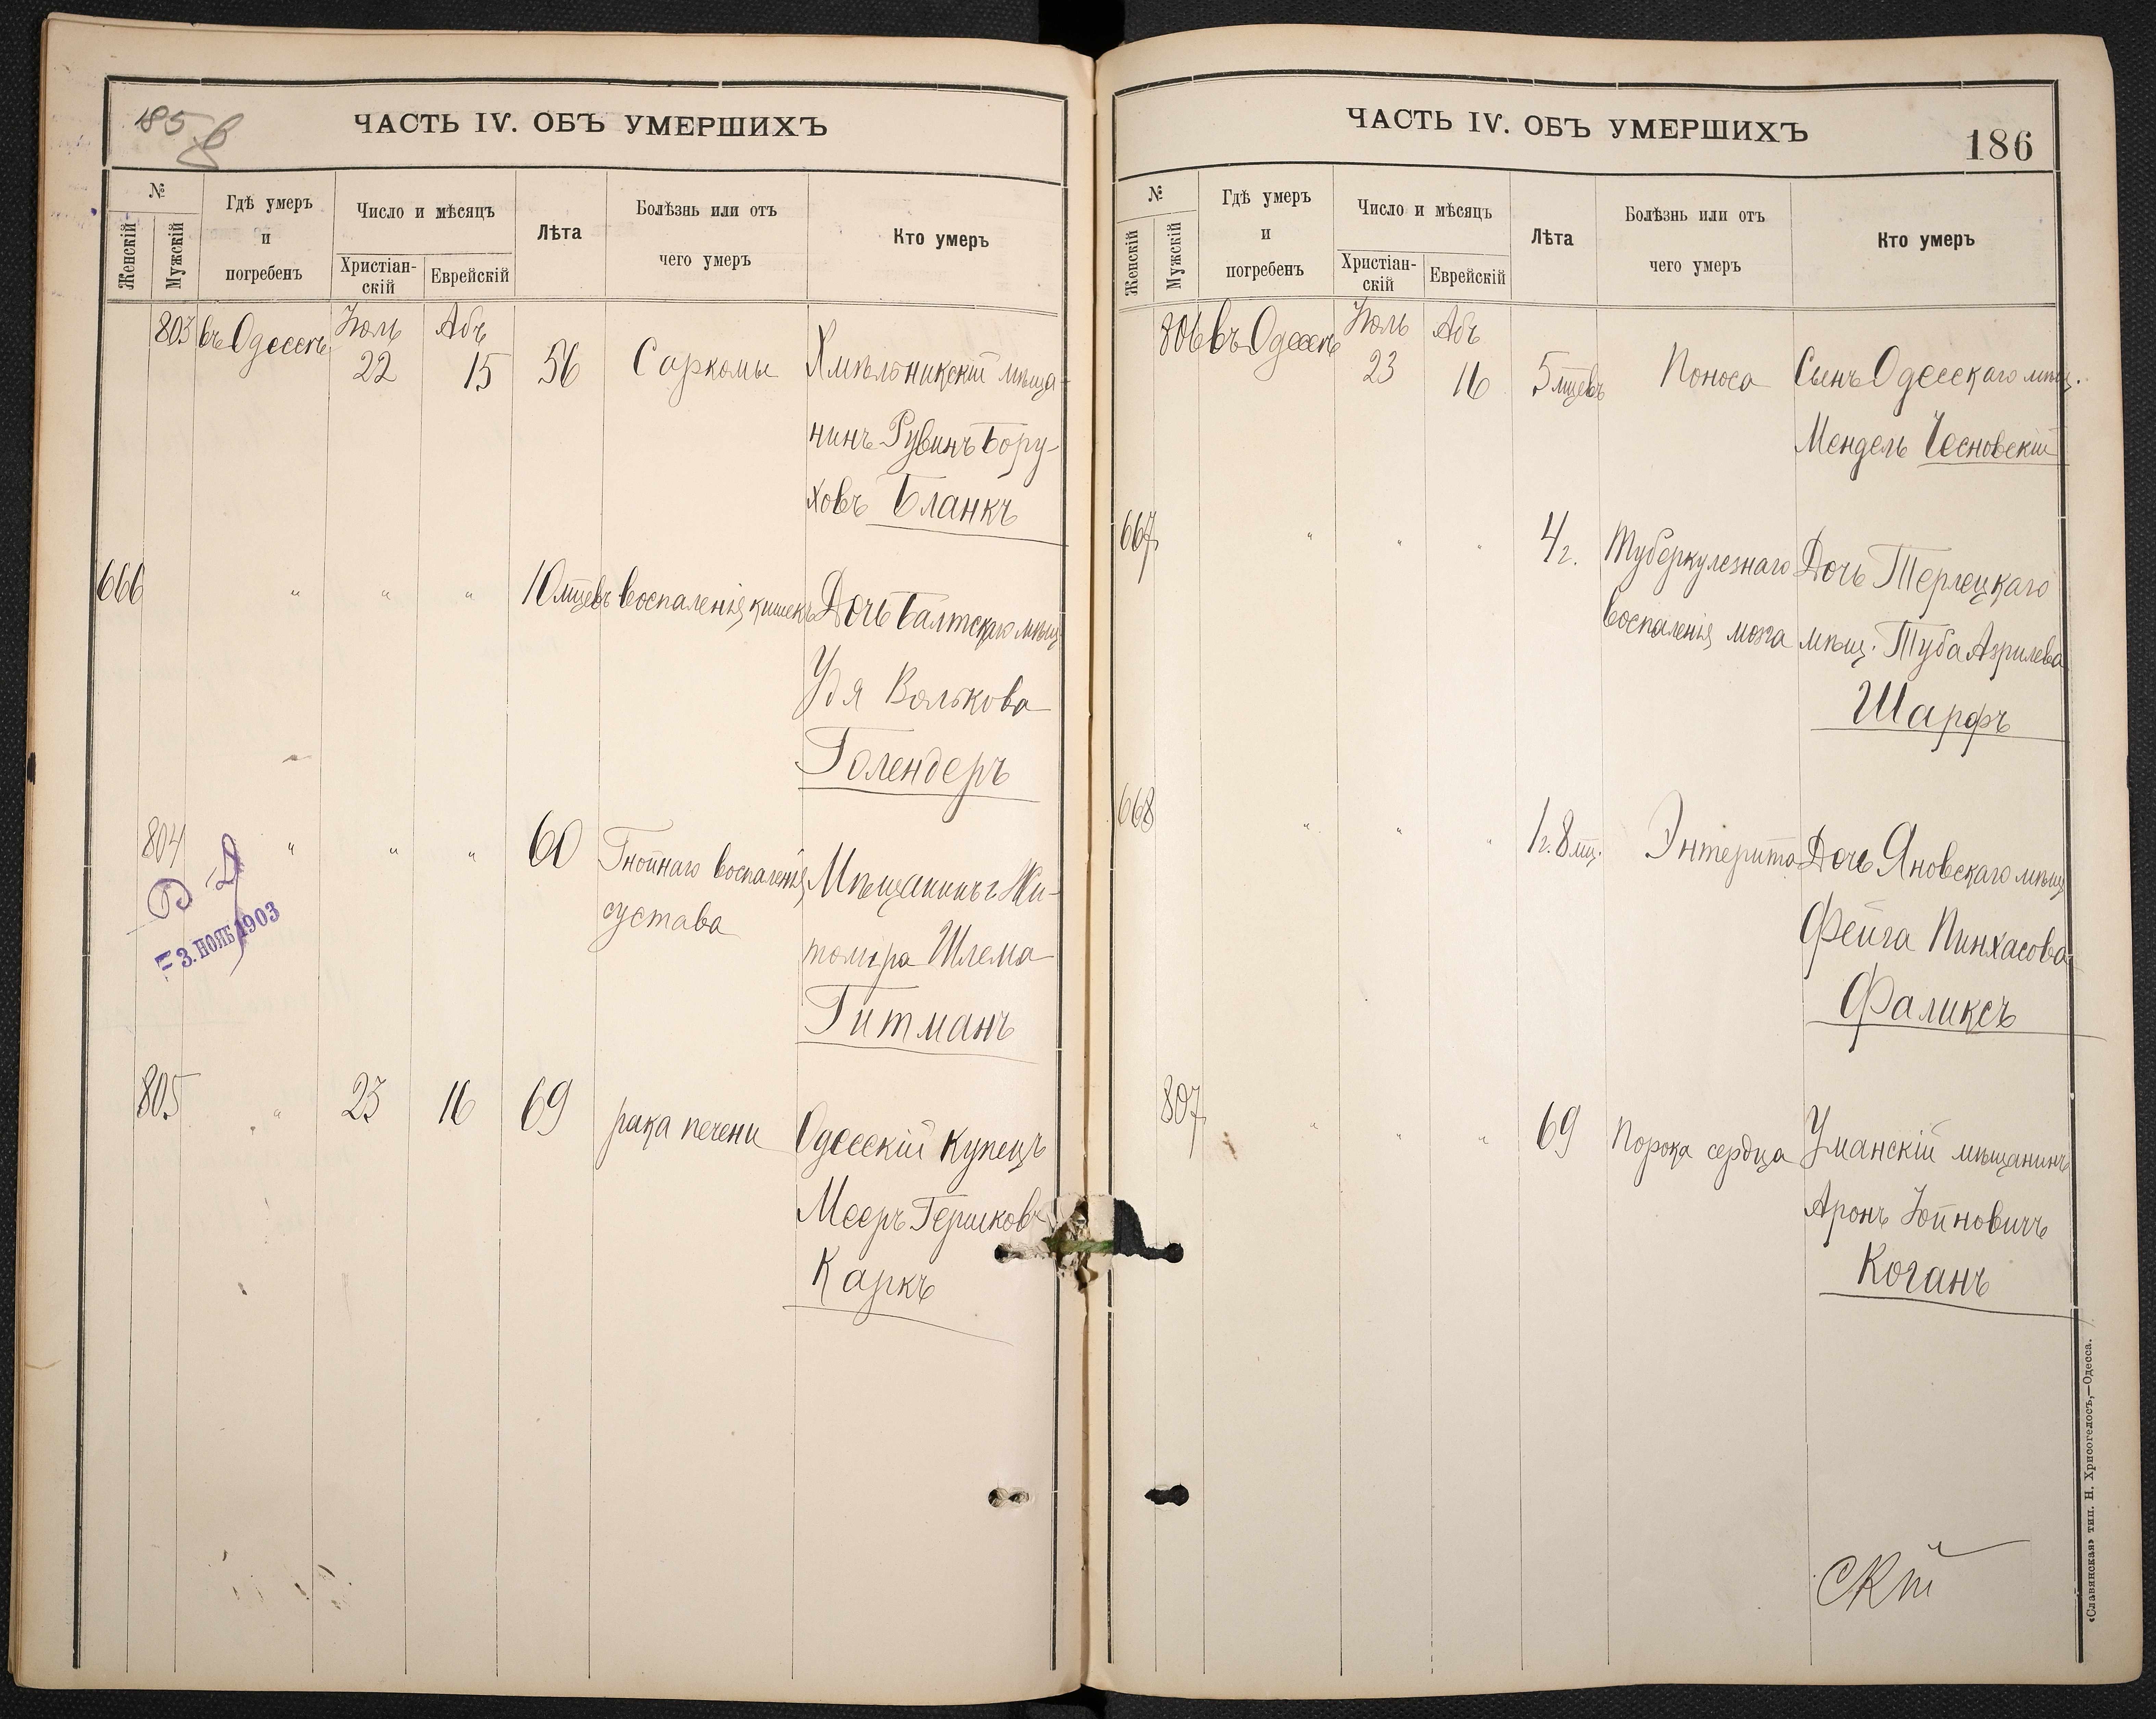 185 в
ЧАСТЬ IV. ОБЪ УМЕРШИХЪ
№
Женскій
Мужскій
Гдѣ умеръ
и
погребенъ
Число и мѣсяцъ
Христіан-
скій
Еврейскій
Лѣта
Болѣзнь или отъ
чего умеръ
Кто умеръ
803 въ Одессѣ Іюль 22 Абъ 15 56 Саркомы Хмѣльникскій мѣща-
нинъ Рувинъ Бору-
ховъ Бланкъ
666 " " " 10 мцевъ Воспаленія кишекъ Дочь Балтскаго мѣщ.
Удя Волькова
Голендеръ
804 " " " 60 Гнойнаго воспаленія Мѣщанинъ г. Жи-
сустава томіра Шлема
Гитманъ
-3. НОЯБ 1903
805 " 23 16 69 рака печени Одесскій купецъ
Мееръ Гершковъ
Каркъ
ЧАСТЬ IV. ОБЪ УМЕРШИХЪ
186
№
Женскій
Мужскій
Гдѣ умеръ
и
погребенъ
Число и мѣсяцъ
Христіан-
скій
Еврейскій
Лѣта
Болѣзнь или отъ
чего умеръ
Кто умеръ
806 въ Одессѣ Іюль 23 Абъ 16 5 мцевъ Поноса Сынъ Одесскаго мѣщ.
Мендель Чесновскій
667 " " " 4 г. Туберкулезнаго Дочь Терлецкаго
воспаленія мозга мѣщ. Туба Азрилева
Шарфъ
668 " " " 1 г. 8 мц. Энтерита Дочь Яновскаго мѣщ
Фейга Пинхасова
Фаликсъ
807 " " " 69 Порока сердца Уманскій мѣщанинъ
Аронъ Іойновичъ
Коганъ
«Славянская» тип. Н. Хрисогелосъ,—Одесса.